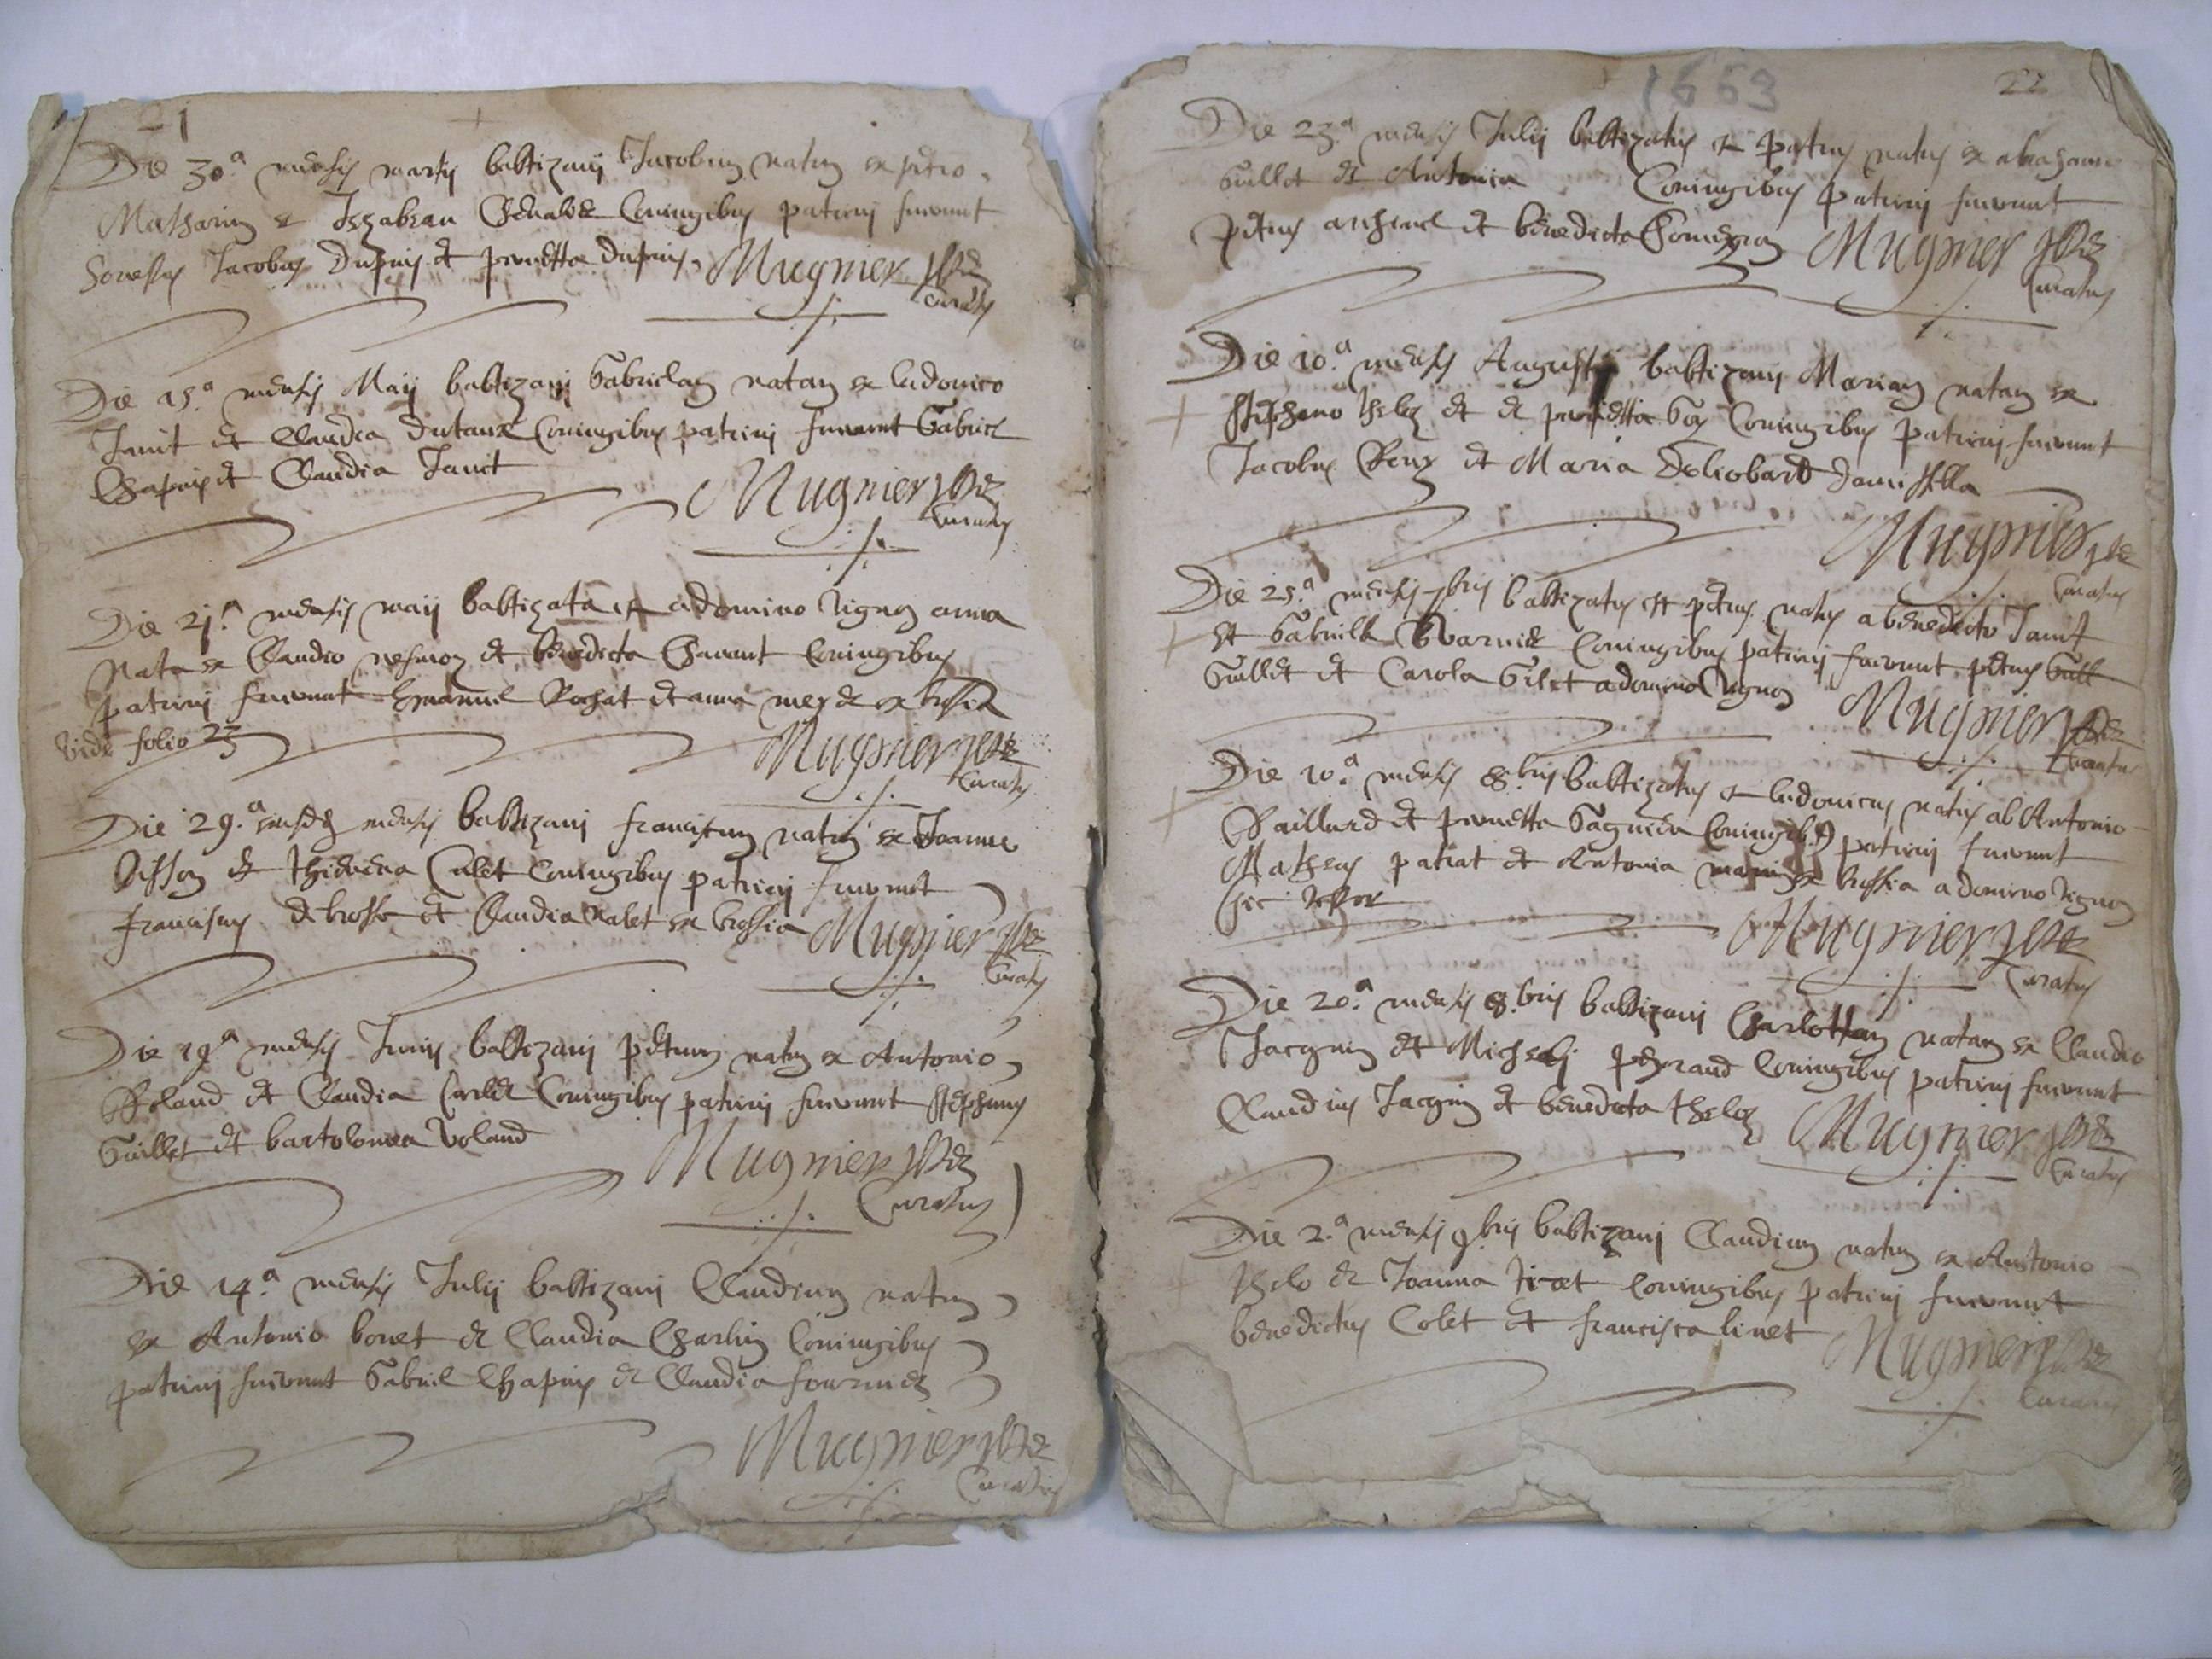 21
Die 30.a mensis martij babtizavij Jacobum natum ex petro
Matharin et Iszabeau Chevalde Coniugibus patrinj fuerunt
Jacobus Dupuis et pernetta dupuis, Mugnier pbr
Curatus
Die 15.a mensis Maij babtizavj Gabrielam natam ex ludovico
Janit et Claudia dutaux Coniugibus patrinj fuerunt Gabriel
Chapuis et Claudia Janit
Mugnier pbr
Curatus
Die 21.a mensis maij babtizata est a domino vignon anna
Nata ex Claudio et benedicta Chavant Coniugibus
patrinj fuerunt Emanuel Rochat et anna ex brossia
vide folio 23
Mugnier pbr
Curatus
Die 29.a eiusdem mensis babtizavj franciscum natum ex Joanne
et thievena Culet Coniugibus patrinj fuerunt
franciscus de brosse et Claudia Nalet ex brossia Mugnier pbr
Curatus
Die 19.a mensis Junij babtizavj petrum natum ex Antonio
Roland et Claudia Carlet Coniugibus patrinj fuerunt stephanus
Guillet et bartolomea Roland
Mugnier pbr
Curatus
Die 14.a mensis Julij babtizavj Claudium natum
ex Antonio bonet et Claudia Charlin Coniugibus
patrinj fuerunt Gabriel Chapuis et Claudia fournier
Mugnier pbr
Curatus
1663
22
Die 23.a mensis Julij babtizatus est petrus natus ex abrahamo
Guillot et Antonia Coniugibus patrinj fuerunt
petrus et benedicta Mugnier pbr
Curatus
Die 10.a mensis Augustj babtizavj Mariam natam ex
stephano thelez et de pernetta Goy Coniugibus patrinj fuerunt
Jacobus Roux et Maria Deliobard
Mugnier pbr
Curatus
Die 25.a mensis 7bris babtizatus est petrus natus a benedicto Janit
et Gabriella Coniugibus patrinj fuerunt petrus
Guillet et Carola Gilet a domino vignon
Mugnier pbr
Curatus
Die 10.a mensis 8.bris babtizatus est ludovicus natus ab Antonio
et pernetta Coniugibus patrinj fuerunt
Matheus patrat et Antonia ex brossia a domino vignon
Mugnier pbr
Curatus
Die 20.a mensis 8.bris babtizavj Charlottam natam ex Claudio
Jacquin et Michaeli peyraud Coniugibus patrinj fuerunt
Claudius Jacquin et benedicta thelez Mugnier pbr
Curatus
Die 2.a mensis 9bris babtizavj Claudium natum ex Antonio
et Joanna Coniugibus patrinj fuerunt
benedictus Colet et francisca linet
Mugnier pbr
Curatus